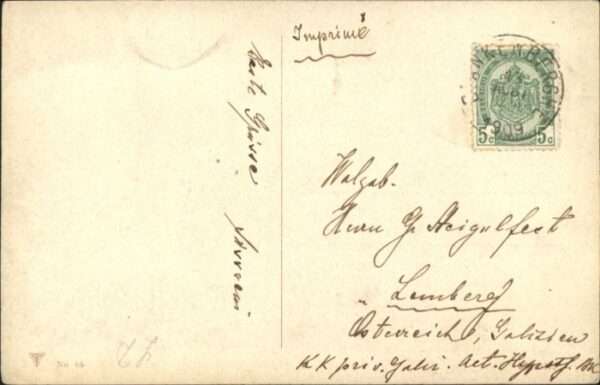 Imprimé
BLANKENBERGHE
1909
5c 5c
Beste Grüsse
Wolgeb.
Herrn G. Steigulfest
Lemberg
Österreich, Galizien
KK priv. Galiz. Act. Hypoth.
No